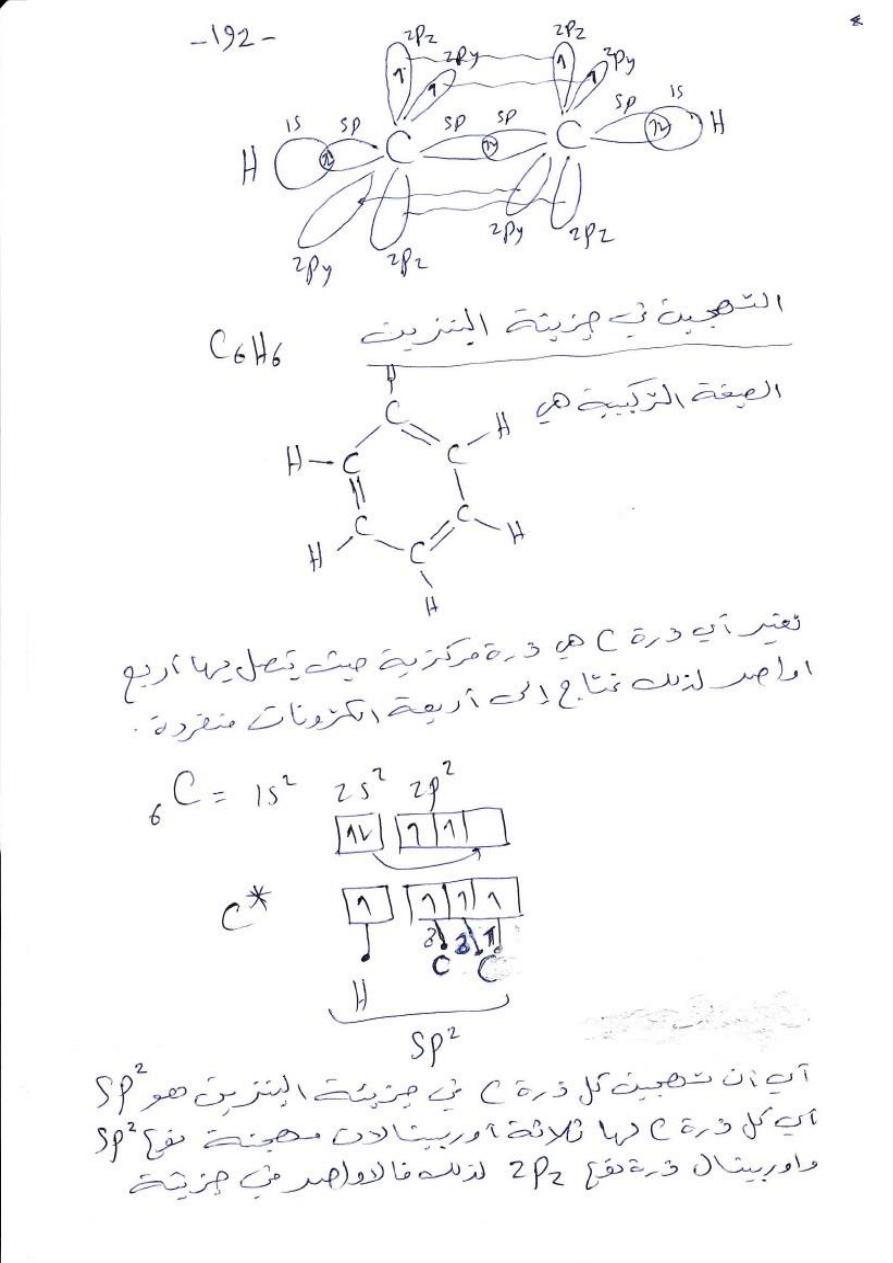 -192-
2Pz 2Py 2Pz 2Py
H 1s sp C sp sp C sp 1s H
2Py 2Pz 2Py 2Pz
التهجين في جزيئة البنزين C6H6
الصيغة التركيبية هي
H
C
H-C C-H
C C
H C H
H
نعتبر أي ذرة C هي ذرة مركزية حيث يتصل بها أربع
اواصر لذلك نحتاج إلى أربعة الكترونات منفردة.
6C = 1s² 2s² 2p²
↑↓ ↑ ↑
C* ↑ ↑ ↑ ↑
H C C
Sp²
أي أن تهجين كل ذرة C في جزيئة البنزين هو SP²
أي كل ذرة C لها ثلاثة أوربيتالات مهجنة نوع SP²
واوربيتال ذرة نوع 2Pz لذلك فالاواصر في جزيئة